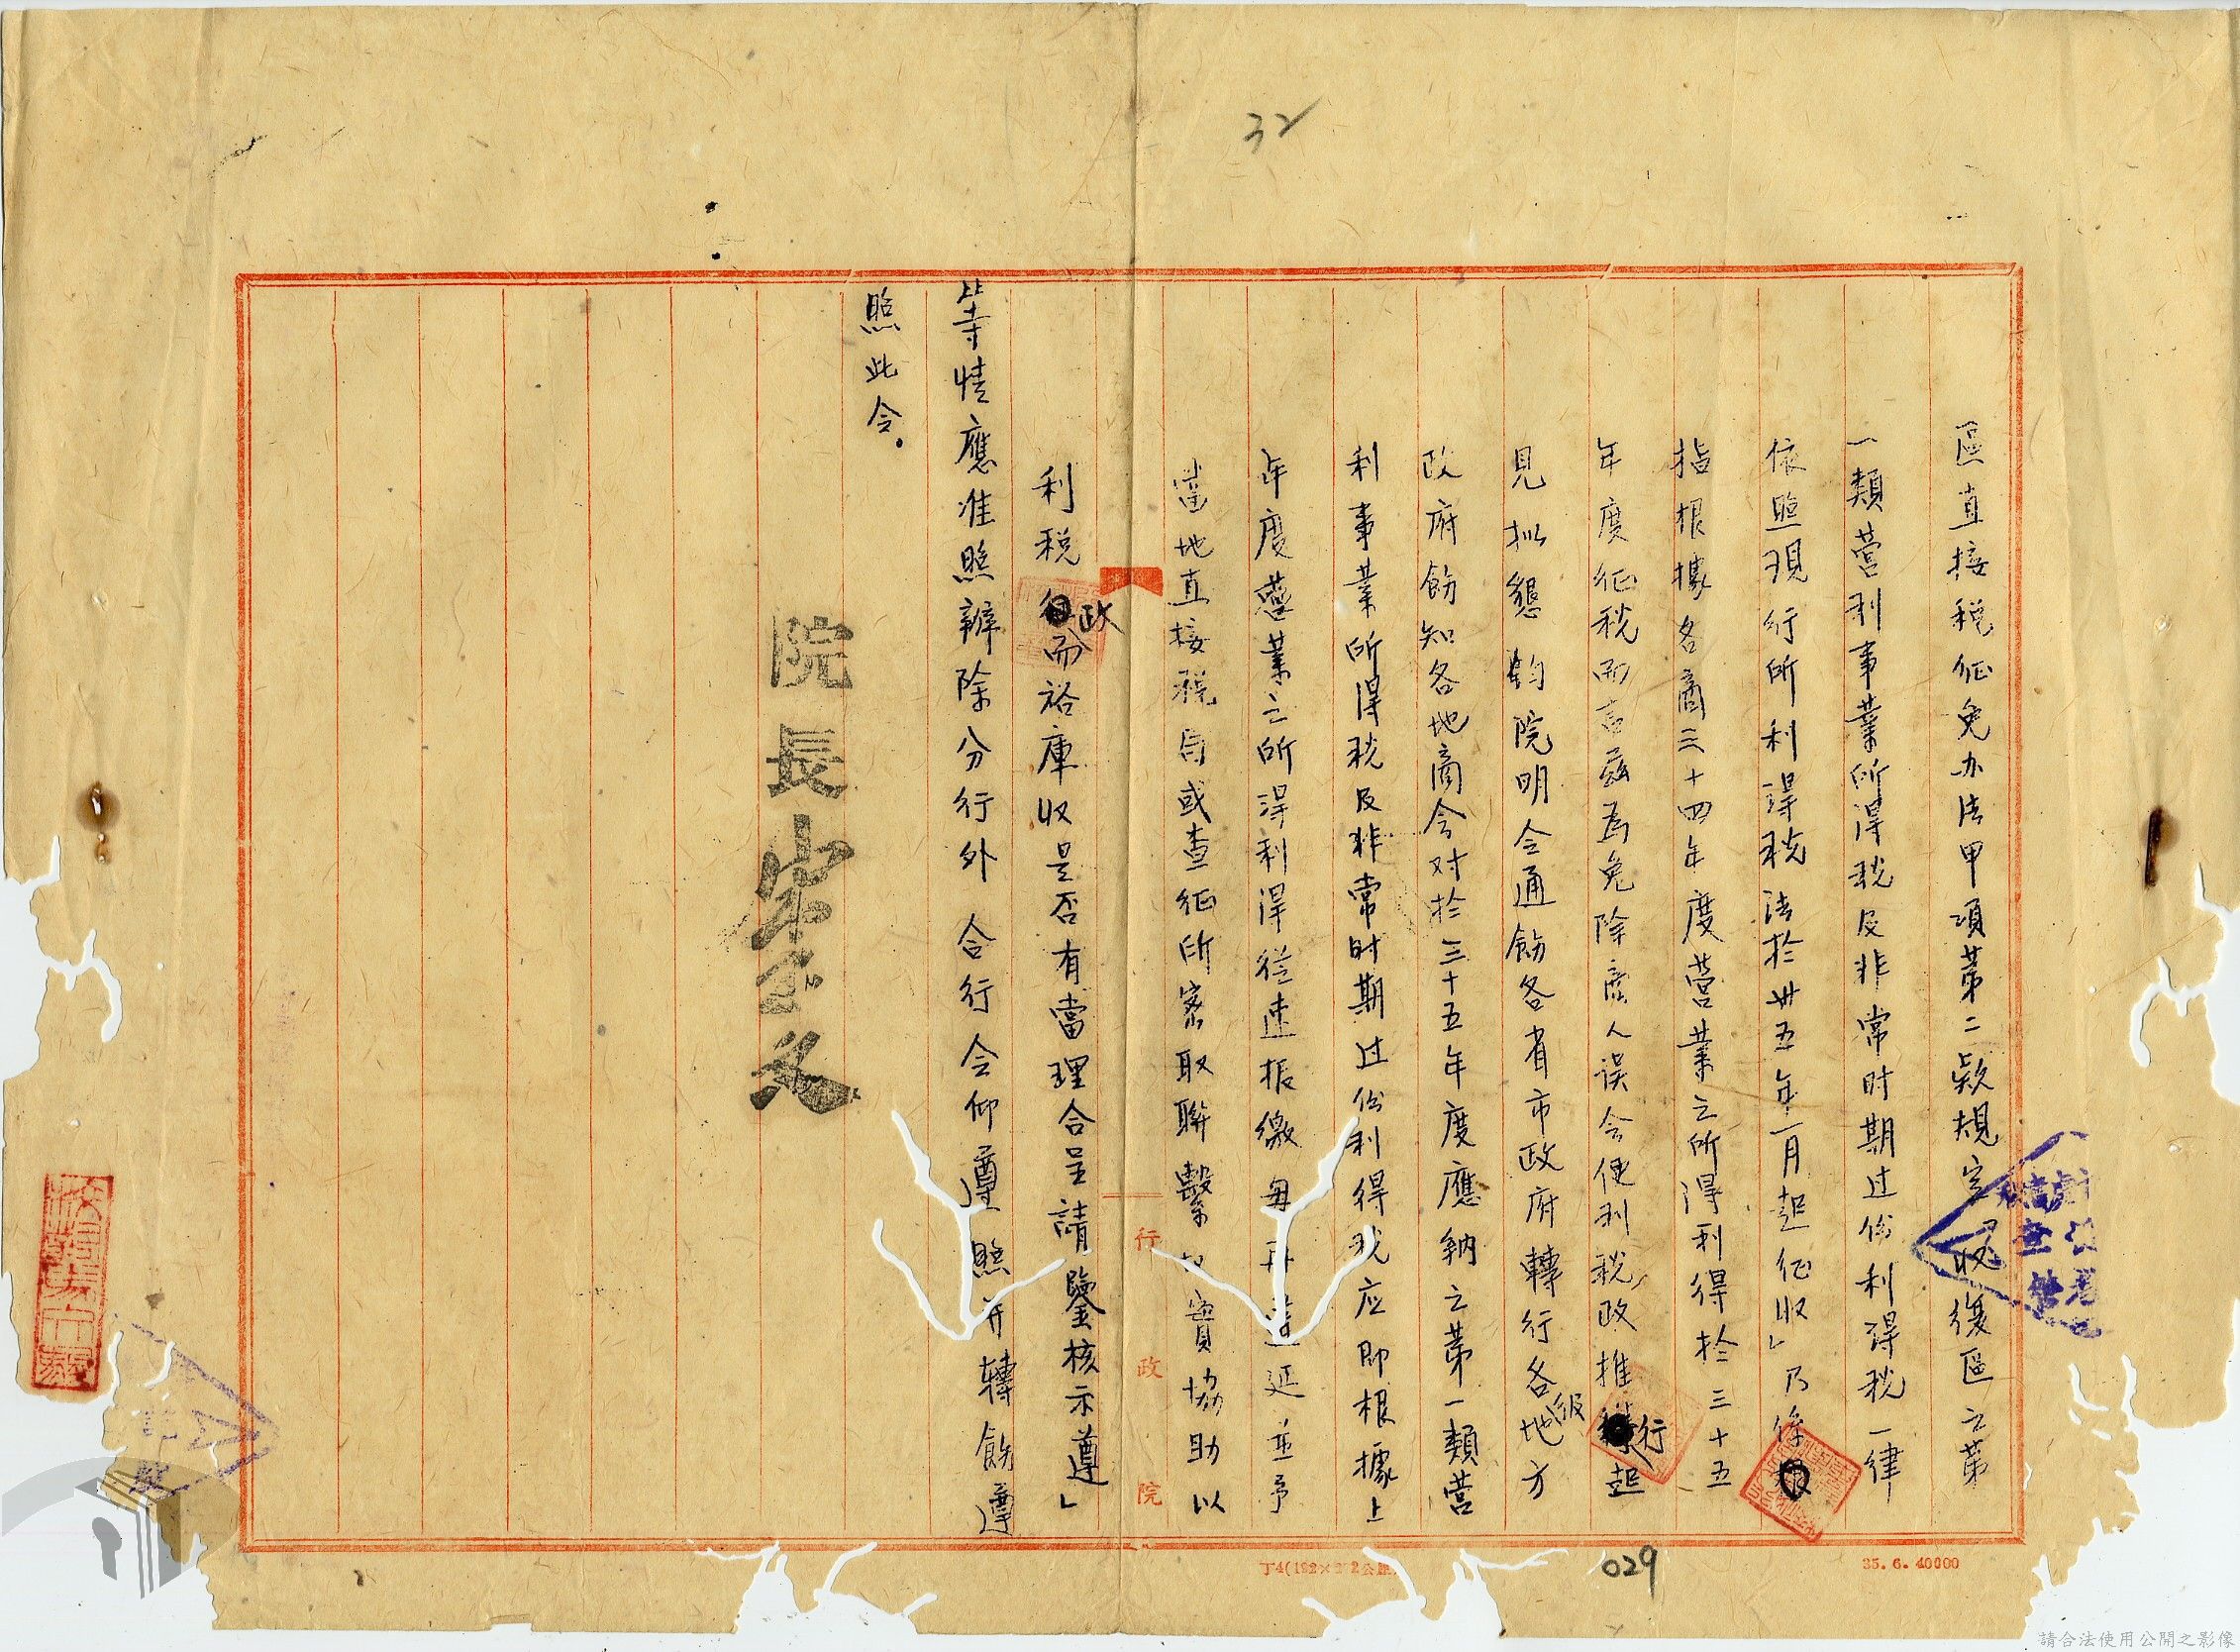 32
區直接稅征免办法甲項第二欵規定「收復區之第
一類营利事業所得税及非常时期过份利得税一律
依照現行所利得税法於卅五年一月起征收」乃係
指根據各商三十四年度营業之所得利得於三十五
年度征税而言茲為免除商人误会便利税政推行起
見拟懇鈞院明令通飭各省市政府轉行各级地方
政府飭知各地商会对於三十五年度應納之第一類营
利事業所得税及非常时期过份利得税应即根據上
年度營業之所得利得從速报繳毋再遲延並予
當地直接税局或查征所密取聯繫切實協助以
利税政而裕庫收是否有當理合呈請鑒核示遵」
等情應准照辦除分行外合行令仰遵照并轉飭遵
照此令。
院長宋子文
行政院
029
35.6.40000
請合法使用公開之影像